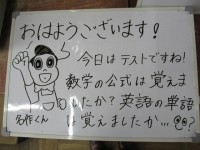 おはようございます!
今日はテストですね!
数学の公式は覚えま
したか?英語の単語
は覚えましたか…?